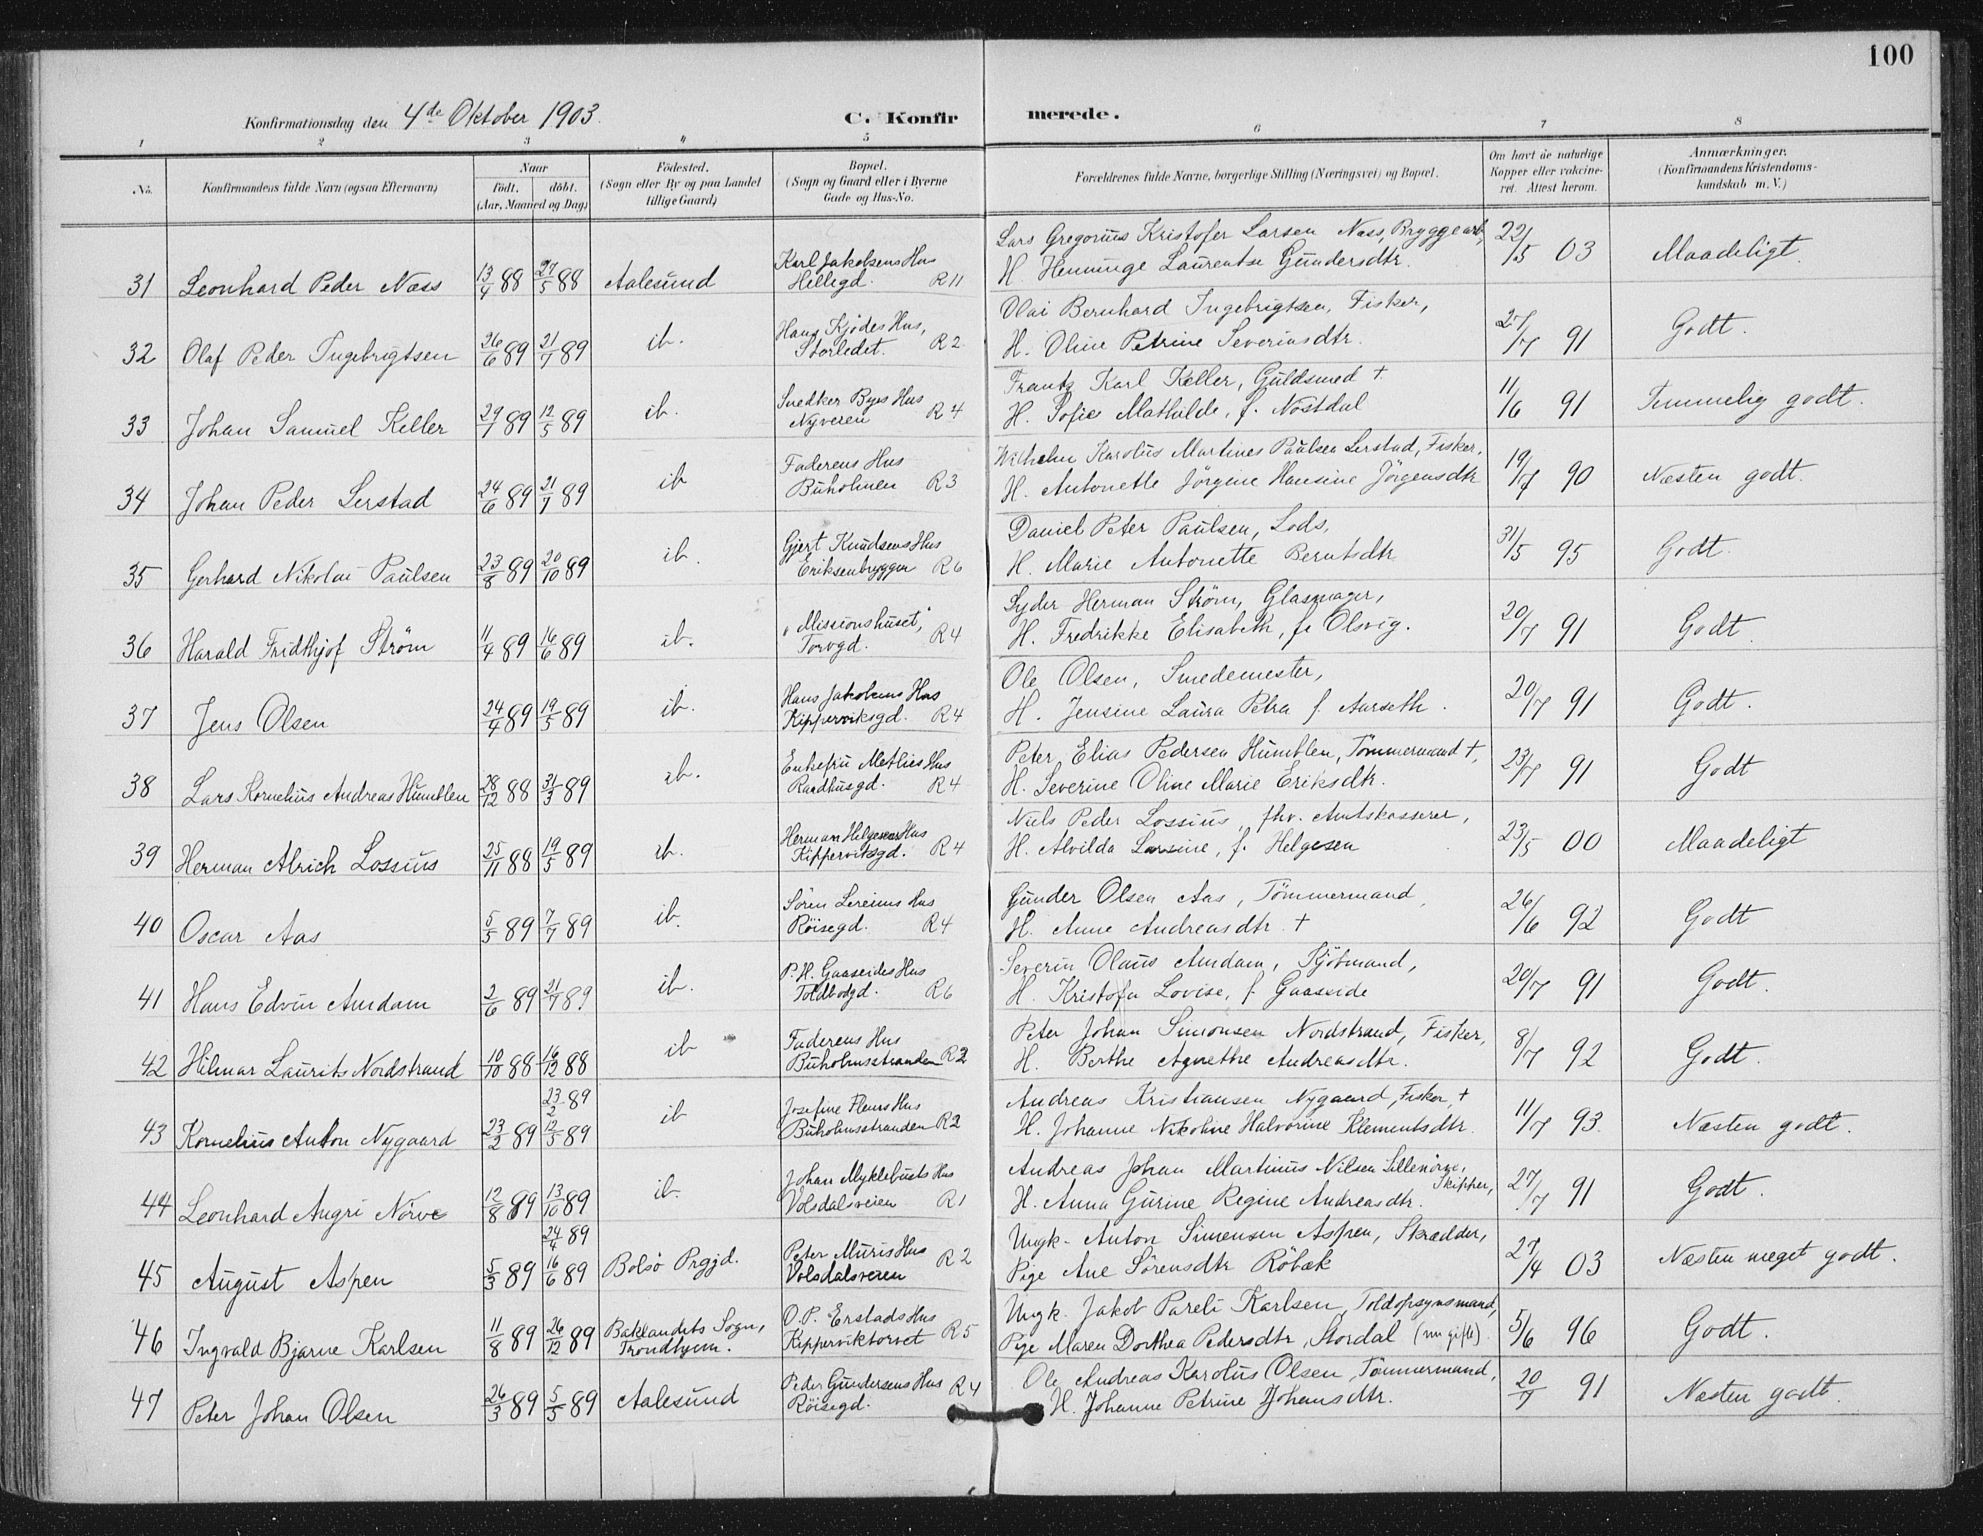 100
Konfirmationsdag den 4de Oktober 1903.
C. Konfirmerede.
1 2 3 4 5 6 7 8
No. Konfirmandens fulde Navn (ogsaa Efternavn) Naar født. døbt. (Aar, Maaned og Dag) Fødested. (Sogn eller By og paa Landet tillige Gaard) Bopæl. (Sogn og Gaard eller i Byerne Gade og Hus-No. Forældrenes fulde Navne, borgerlige Stilling (Næringsvei) og Bopæl. Om havt de naturlige Kopper eller vakcineret. Attest herom. Anmærkninger. (Konfirmandens Kristendomskundskab m. V.)
31 Leonhard Peder Næss 13/4 88 27/5 88 Aalesund Karl Jakobsens Hus Helligd. R 11 Lars Gregorius Kristofer Larsen Næss, Bryggearb., H. Henninge Laurentse Gundersdtr. 22/5 03 Maadeligt.
32 Olaf Peder Ingebrigtsen 26/6 89 21/7 89 ib. Hans Kjødes Hus, Storledet. R 2 Olai Bernhard Ingebrigtsen, Fisker, H. Oline Petrine Severinsdtr. 27/7 91 Godt.
33 Johan Samuel Keller 29/1 89 12/5 89 ib. Snedker Byes Hus Nyveien R 4 Frantz Karl Keller, Guldsmed † H. Sofie Mathilde, f. Nostdal 11/6 91 Temmelig godt.
34 Johan Peder Lerstad 24/6 89 21/7 89 ib Faderens Hus Buholmen R 3 Wilhelm Karolus Martines Paulsen Lerstad, Fisker, H. Antonette Jörgine Hansine Jörgensdtr 19/7 90 Næsten godt.
35 Gerhard Nikolai Paulsen 23/8 89 20/10 89 ib. Gjert Knudsens Hus Eriksenbryggen R 6 Daniel Peter Paulsen, Lods, H. Marie Antonette Berntsdtr 31/5 95 Godt.
36 Harald Fridthjof Strøm 11/4 89 16/6 89 ib. "Missionshuset", Torvgd. R 4 Syder Herman Strøm, Glasmager, H. Fredrikke Elisabeth, f. Olsvig. 20/7 91 Godt.
37 Jens Olsen 24/4 89 19/5 89 ib. Hans Jakobsens Hus Kipperviksgd. R 4 Ole Olsen, Smedemester, H. Jensine Laura Petra f. Aarseth. 20/7 91 Godt.
38 Lars Kornelius Andreas Humblen 28/12 88 31/3 89 ib. Enkefru Methies Hus Raadhusgd. R 4 Peter Elias Pedersen Humblen, Tømmermand †, H. Severine Oline Marie Eriksdtr. 23/7 91 Godt
39 Herman Alrich Lossius 25/11 88 19/5 89 ib. Herman Helgesens Hus Kipperviksgd. R 4 Niels Peder Lossius, fhv. Amtskasserer, H. Alvilda Larsine, f. Helgesen 23/5 00 Maadeligt
40 Oscar Aas 5/5 89 7/7 89 ib. Søren Hus Röisegd. R 4 Gunder Olsen Aas, Tömmermand, H. Anne Andreasdtr. † 26/6 92 Godt
41 Hans Edvin Amdam 2/6 89 21/7 89 ib. P. H. Gaaseides Hus Toldbodgd. R 6 Severin Olaus Amdam, Kjöbmand, H. Kristofa Lovise, f. Gaaseide 20/7 91 Godt.
42 Hilmar Laurits Nordstrand 10/10 88 16/12 88 ib Faderens Hus Buholmsstranden R 2 Peter Johan Simonsen Nordstrand, Fisker, H. Berthe Agnethe Andreasdtr. 8/7 92 Godt.
43 Kornelius Anton Nygaard 23/2 89 23/2 89 12/5 89 ib Josefine Fleurs Hus Buholmsstranden R 2 Andreas Kristiansen Nygaard, Fisker, † H. Johanne Nikoline Halvorine Klementsdtr. 11/7 93. Næsten godt.
44 Leonhard Angri Nörve 12/8 89 13/10 89 ib. Johan Myklebusts Hus Volsdalsveien R 1 Andreas Johan Martinus Nilsen Lillenörve, Skipper, H. Anna Gurine Regine Andreasdtr. 27/7 91 Godt.
45 August Aspen 5/3 89 24/4 89 16/6 89 Bolsø Prgjd. Peter Muris Hus Volsdalsveien R 2 Ungk. Anton Simensen Aspen, Skrædder, Pige Ane Sörensdtr Röbæk 27/4 03 Næsten meget godt.
46 Ingvald Bjarne Karlsen 11/8 89 26/12 89 Baklandets Sogn, Trondhjem. O. P. Erstads Hus Kipperviktorvet R 5 Ungk. Jakob Pareli Karlsen, Toldopsynsmand, Pige Maren Dorthea Pedersdtr, Stordal (nu gifte). 5/6 96 Godt.
47 Peter Johan Olsen 26/3 89 5/5 89 Aalesund Peder Gundersens Hus Röisegd. R 4 Ole Andreas Karolus Olsen, Tömmermand, H. Johanne Petrine Johansdtr. 20/7 91 Næsten godt.